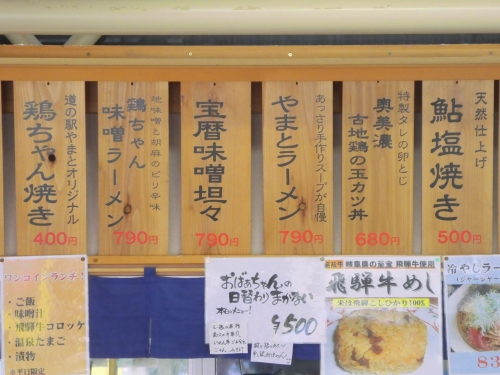 天然仕上げ
鮎塩焼き
500円
特製タレの卵とじ
奥美濃
古地鶏の玉カツ丼
680円
あっさり手作りスープが自慢
やまとラーメン
790円
宝暦味噌坦々
790円
地味噌と胡麻のピリ辛味
鶏ちゃん
味噌ラーメン
790円
道の駅やまとオリジナル
鶏ちゃん焼き
400円
ワンコインランチ!
・ご飯
・味噌汁
・飛騨牛コロッケ
・温泉たまご
・漬物
※平日限定
おばぁちゃんの
日替わりまかない
本日のメニュー!
¥500
岐阜県の至宝 飛騨牛使用
飛騨牛めし
米は飛騨こしひかり100%
冷やしラー